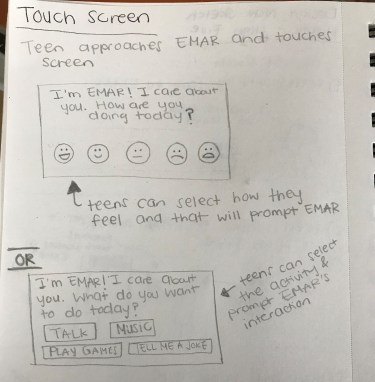 Touch Screen
Teen approaches EMAR and touches
screen
I'm EMAR! I care about
you. How are you
doing today?
teens can select how they
feel and that will prompt EMAR
OR
I'm EMAR! I care about
you. What do you want
to do today?
TALK
MUSIC
PLAY GAMES
TELL ME A JOKE
teens can select
the activity &
prompt EMAR's
interaction